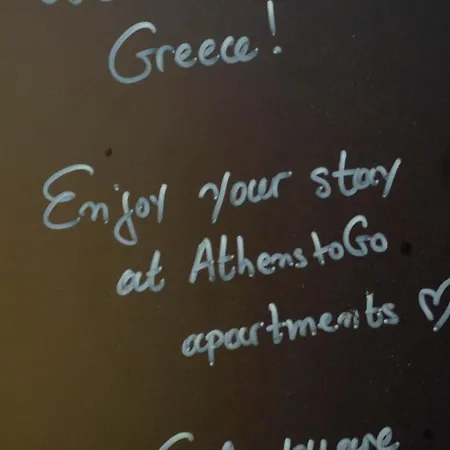 Greece!
Enjoy your stay
at AthenstoGo
apartments ♡
are